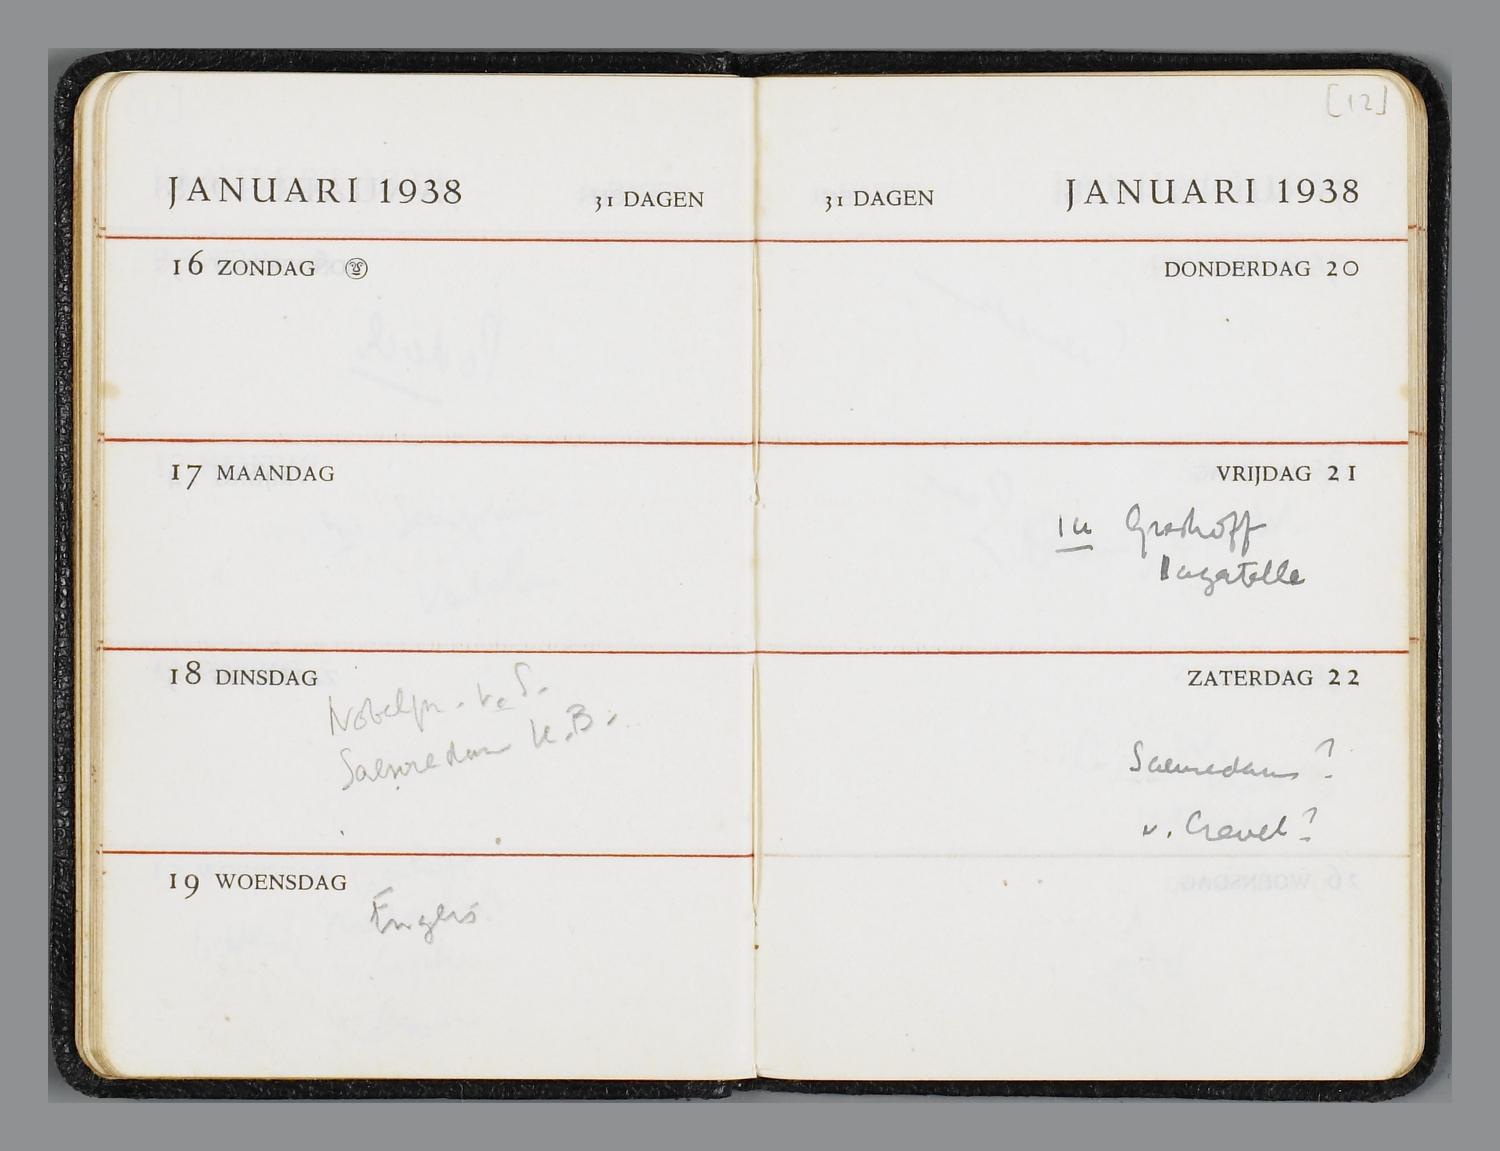 [12]
JANUARI 1938 31 DAGEN
16 ZONDAG
17 MAANDAG
18 DINSDAG
Saenredam K.B.
19 WOENSDAG
Engels
31 DAGEN JANUARI 1938
DONDERDAG 20
VRIJDAG 21
Grashoff
Bagatelle
ZATERDAG 22
Saenredam ?
v. Crevel ?